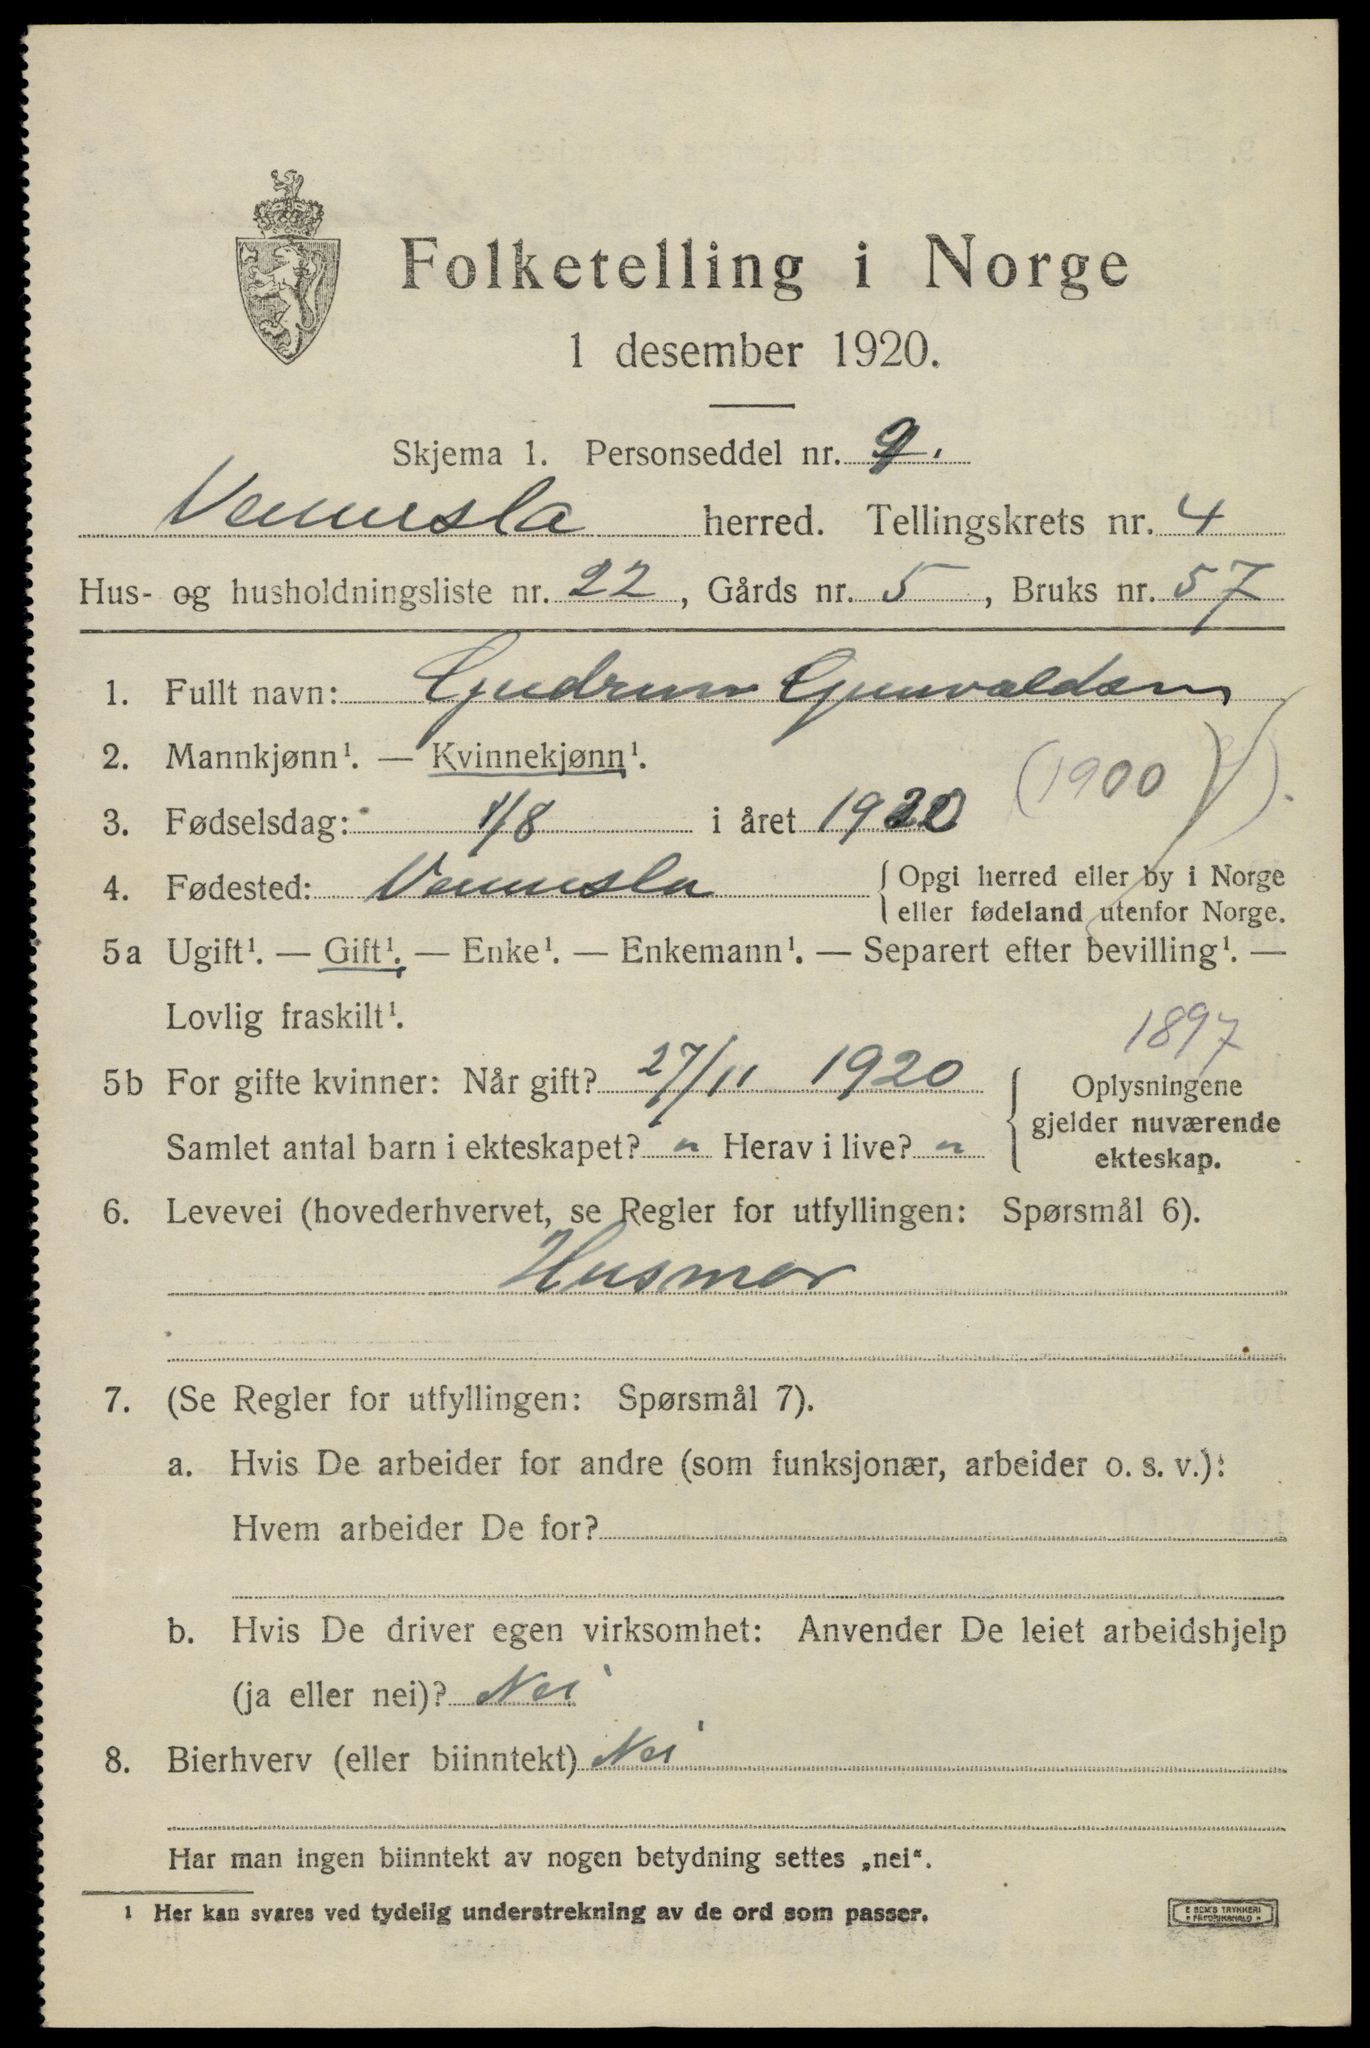 Folketelling i Norge
1 desember 1920.
Skjema 1. Personseddel nr. 9.
Vennesla herred. Tellingskrets nr. 4
Hus- og husholdningsliste nr. 22, Gårds nr. 5, Bruks nr. 57
1. Fullt navn: Gudrun Gunvaldsen
2. Mannkjønn¹. — Kvinnekjønn¹.
(1900 ).
3. Fødselsdag: 1/8 i året 1920
4. Fødested: Vennesla { Opgi herred eller by i Norge
eller fødeland utenfor Norge.
5a Ugift¹. — Gift¹. — Enke¹. — Enkemann¹. — Separert efter bevilling¹. —
Lovlig fraskilt¹.
1897
5b For gifte kvinner: Når gift? 27/11 1920 { Oplysningene
gjelder nuværende
Samlet antal barn i ekteskapet? " Herav i live? "
ekteskap.
6. Levevei (hovederhvervet, se Regler for utfyllingen: Spørsmål 6).
Husmor
7. (Se Regler for utfyllingen: Spørsmål 7).
a. Hvis De arbeider for andre (som funksjonær, arbeider o. s. v.):
Hvem arbeider De for?
b. Hvis De driver egen virksomhet: Anvender De leiet arbeidshjelp
(ja eller nei)? Nei
8. Bierhverv (eller biinntekt) Nei
Har man ingen biinntekt av nogen betydning settes „nei“.
1 Her kan svares ved tydelig understrekning av de ord som passer.
E SEM'S TRYKKERI
FREDRIKSHALD